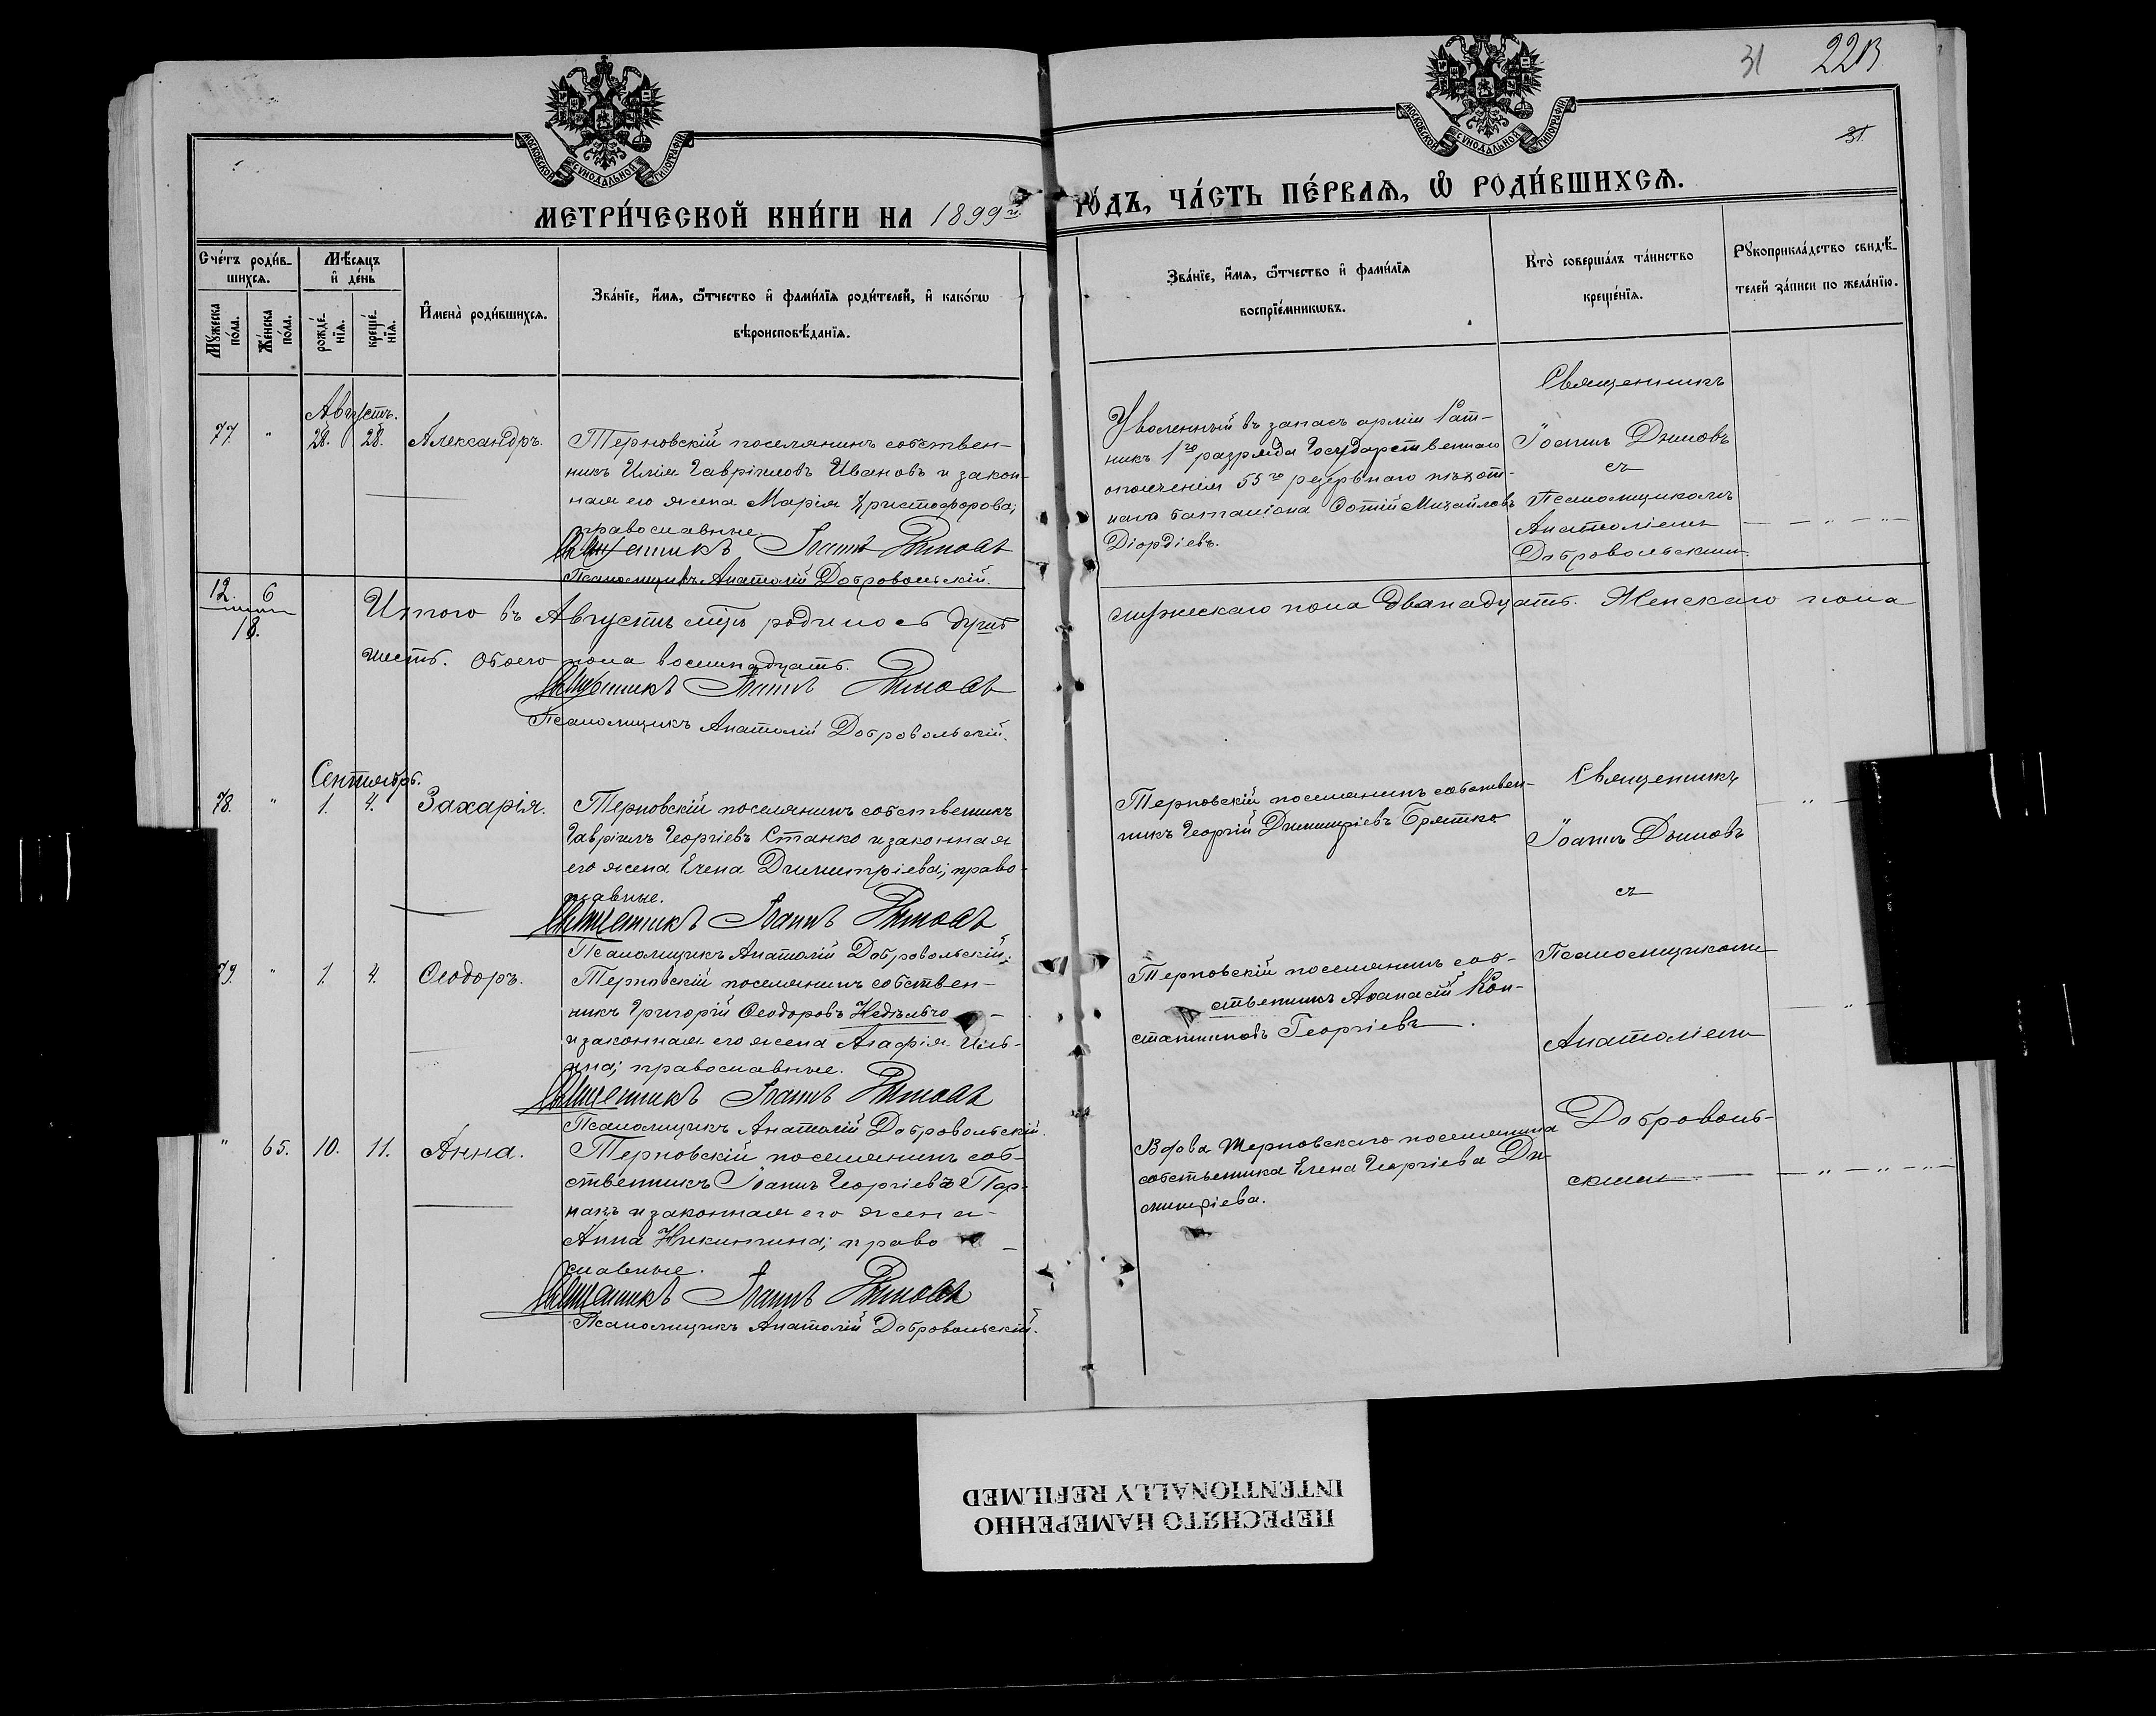 31 22В
31.
МОСКОВСКОЙ СУНОДАЛЬНОЙ ТИПОГРАФІИ
МОСКОВСКОЙ СУНОДАЛЬНОЙ ТИПОГРАФІИ
МЕТРИ́ЧЕСКОЙ КНИ́ГИ НА 1899 й
ГО́ДЪ, ЧА́СТЬ ПЕ́РВАѦ, Ѽ РОДИ́ВШИХСѦ.
Сче́тъ роди́в-
шихсѧ.
Мꙋ́жеска по́ла.
Же́нска по́ла.
Мѣ́сѧцъ
и҆ де́нь
рожде́-
нїѧ.
креще́-
нїѧ.
И҆мена̀ роди́вшихсѧ.
Зва́нїе, и҆́мѧ, ѻ҆́тчество и҆ фами́лїѧ роди́телей, и҆ како́гѡ
вѣроисповѣ́данїѧ.
Зва́нїе, и҆́мѧ, ѻ҆́тчество и҆ фами́лїѧ
воспрїе́мникѡвъ.
Кто̀ соверша́лъ та́инство
креще́нїѧ.
Рꙋкоприкла́дство свидѣ́-
телей за́писи по жела́нїю.
Августъ.
77. " 28. 28. Александръ.
Терновскій поселянинъ собствен-
никъ Илія Гавріиловъ Ивановъ и закон-
ная его жена Марія Христофорова;
православные.
Священникъ Іоаннъ Димовъ
Псаломщикъ Анатолій Добровольскій.
Уволенный въ запасъ арміи Рат-
никъ 1го разряда Государственнаго
ополченія 55го резервнаго пѣхот-
наго баталіона Фотій Михайловъ
Діордіевъ.
Священникъ
Іоаннъ Димовъ
съ
Псаломщикомъ
Анатоліемъ
Добровольскимъ.
12. 6
18.
Итого въ Августѣ мцѣ родилось душъ
мужескаго пола двѣнадцать. Женскаго пола
шесть. Обоего пола восемнадцать.
Священникъ Іоаннъ Димовъ
Псаломщикъ Анатолій Добровольскій.
Сентябрь.
78. " 1. 4. Захарія.
Терновскій поселянинъ собственникъ
Гавріилъ Георгіевъ Станко и законная
его жена Елена Димитріева; право-
славные.
Священникъ Іоаннъ Димовъ
Псаломщикъ Анатолій Добровольскій.
Терновскій поселянинъ собствен-
никъ Георгій Димитріевъ Братко
Священникъ
Іоаннъ Димовъ
съ
79. " 1. 4. Ѳеодоръ.
Терновскій поселянинъ собствен-
никъ Григорій Ѳеодоровъ Недѣльчо
и законная его жена Агафія Иль-
ина; православные.
Священникъ Іоаннъ Димовъ
Псаломщикъ Анатолій Добровольскій.
Терновскій поселянинъ соб-
ственникъ Аѳанасій Кон-
стантиновъ Георгіевъ.
Псаломщикомъ
Анатоліемъ
" 65. 10. 11. Анна.
Терновскій поселянинъ соб-
ственникъ Іоаннъ Георгіевъ Пар-
накъ и законная его жена
Анна Никитина; право
славные.
Священникъ Іоаннъ Димовъ
Псаломщикъ Анатолій Добровольскій.
Вдова Терновскаго поселянина
собственника Елена Георгіева Ди-
митріева.
Доброволь-
скимъ
ПЕРЕСНЯТО НАМЕРЕННО
INTENTIONALLY REFILMED